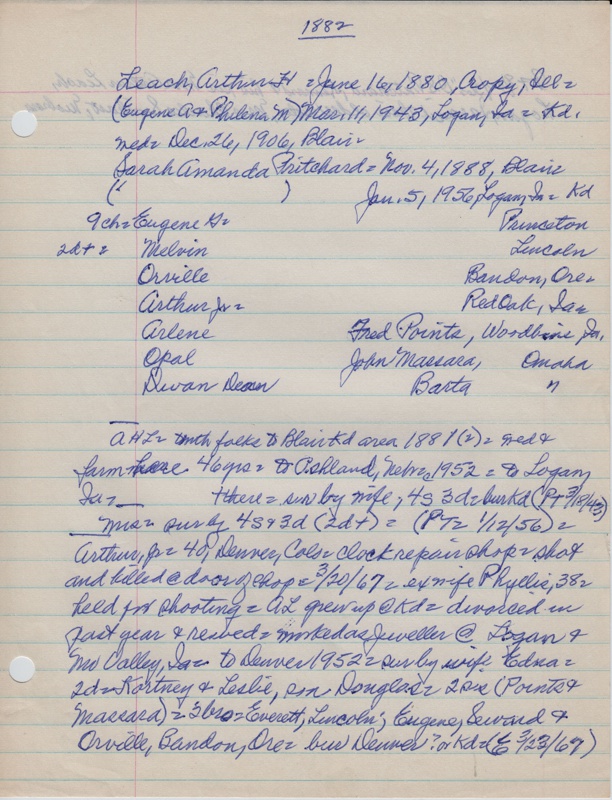 1882
Leach, Arthur H = June 16, 1880, Cropy, Del =
(Eugene A & Philena M) Mar. 11, 1943, Logan, Ia = Kd.
wed = Dec. 26, 1906, Blair =
Sarah Amanda Pritchard = Nov. 4, 1888, Blair
(" ) Jan. 5, 1956, Logan, Ia = Kd
9ch = Eugene G = Princeton
2d+ = Melvin Lincoln
Orville Bandon, Ore =
Arthur Jr = Red Oak, Ia =
Arlene Fred Points, Woodbine Ia,
Opal John Massara, Omaha
Dean Barta "
AHL = with folks to Blair Kd area 1881(2) = wed &
farm here 46 yrs = to Ashland, Nebr, 1952 = to Logan,
Ia = & there = sur by wife, 4s 3d = bur Kd (PT 3/18/43)
Mrs = sur by 4s & 3d (2d+) = (PT = 1/12/56) =
Arthur, Jr = 40, Denver, Colo = clock repair shop = shot
and killed @ door of shop = 3/20/67 = ex wife Phyllis, 38 =
held for shooting = AL grew up @ Kd = divorced in
past year & rewed = worked as jeweller @ Logan &
Mo Valley, Ia = to Denver 1952 = sur by wife Edna =
2d = Kortney & Leslie, son Douglas = 2 sis (Points &
Massara) = 3 bro = Everett, Lincoln; Eugene, Seward &
Orville, Bandon, Ore = bur Denver? or Kd = (E 3/23/67)